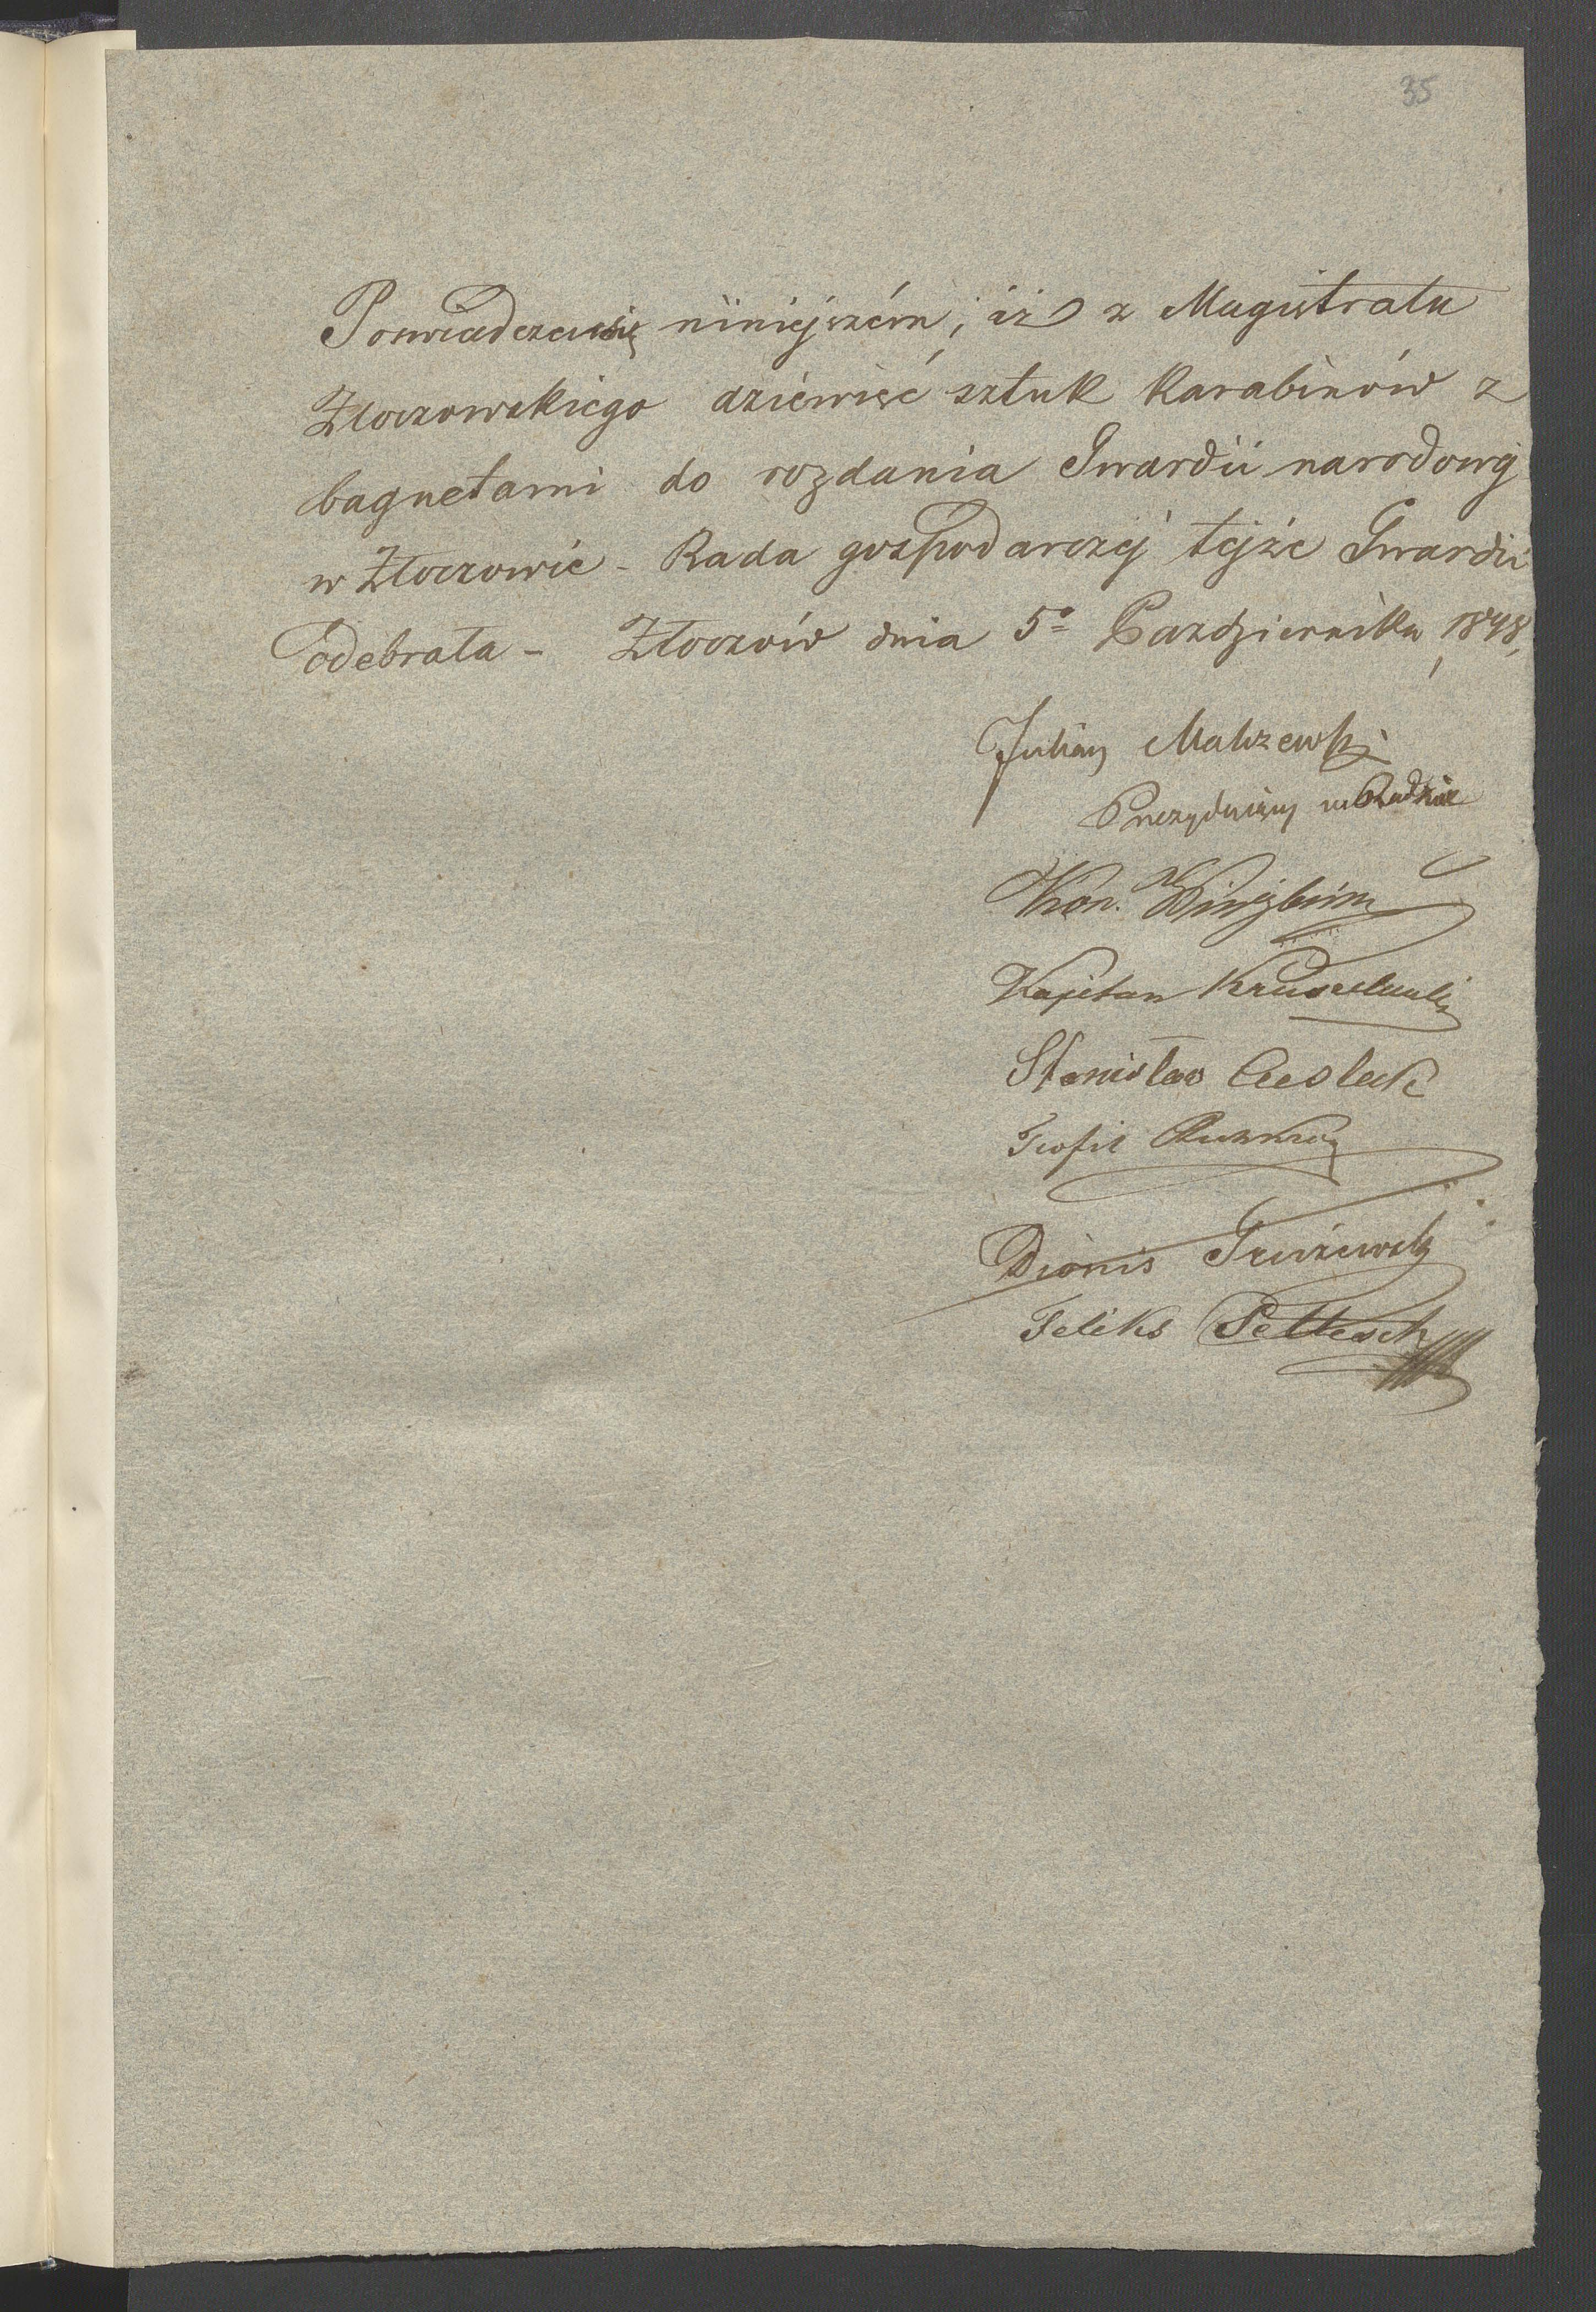 35
Poswiadcza się niniejszém, iż z Magistratu
Złoczowskiego dziewięć sztuk karabinów z
bagnetami do rozdania Gwardii narodowej
w Złoczowie - Rada gospodarczej tejże Gwardii
odebrała - Złoczów dnia 5º Pazdziernika 1848,
Julian Malczewski
Prezydujący w Radzie
Kon.
Kajetan
Stanisław Ciesleck
Teofil
Dionis Gruzewski
Feliks Peltesch